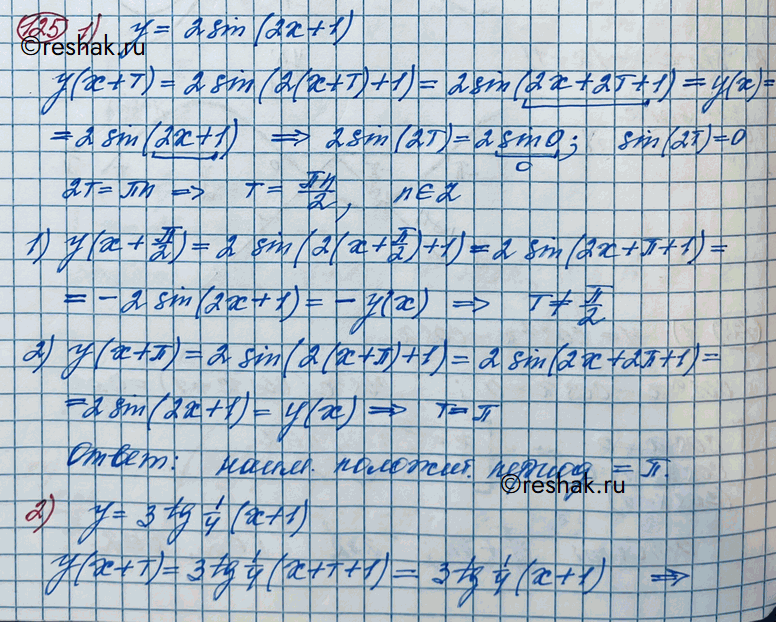 125 1) y = 2 sin (2x+1)
©reshak.ru
y(x+T) = 2 sin (2(x+T)+1) = 2 sin (2x+2T+1) = y(x) =
= 2 sin (2x+1) ⇒ 2 sin (2T) = 2 sin 0; sin (2T) = 0
0
2T = πn ⇒ T = πn/2, n∈Z
1) y(x+π/2) = 2 sin (2(x+π/2)+1) = 2 sin (2x+π+1) =
= -2 sin (2x+1) = -y(x) ⇒ T ≠ π/2
2) y(x+π) = 2 sin (2(x+π)+1) = 2 sin (2x+2π+1) =
= 2 sin (2x+1) = y(x) ⇒ T = π
Ответ: наим. положит. период = π.
©reshak.ru
2) y = 3 tg 1/4 (x+1)
y(x+T) = 3 tg 1/4 (x+T+1) = 3 tg 1/4 (x+1) ⇒